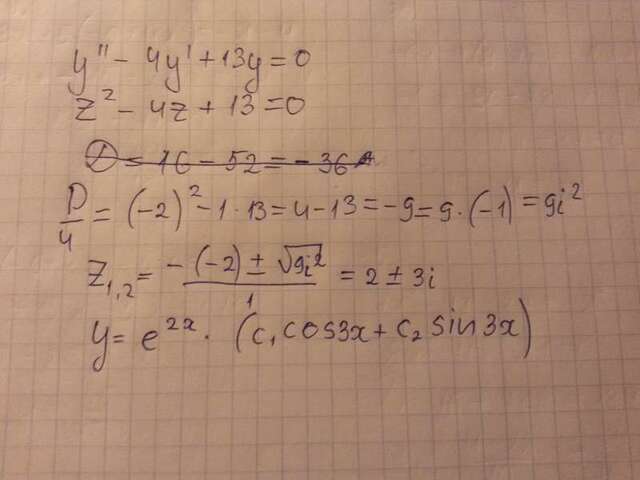 y'' - 4y' + 13y = 0
z² - 4z + 13 = 0
D = 16 - 52 = -36
D/4 = (-2)² - 1 · 13 = 4 - 13 = -9 = 9 · (-1) = 9i²
z₁,₂ = (-(-2) ± √9i²)/1 = 2 ± 3i
y = e²ˣ · (c₁ cos3x + c₂ sin3x)